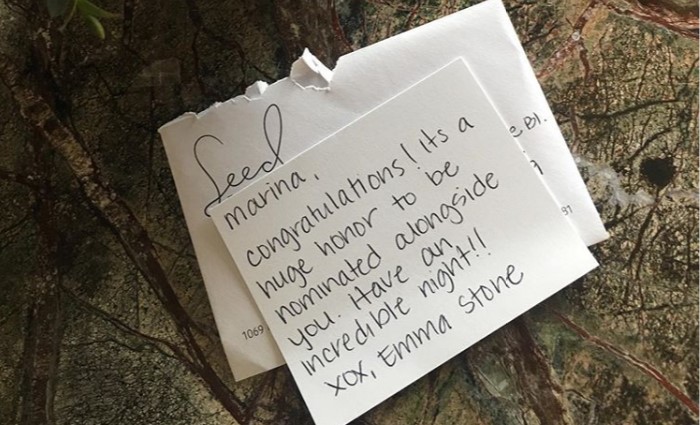 Seed
marina,
congratulations! its a
huge honor to be
nominated alongside
you. Have an
incredible night!!
xox, Emma Stone
1069
e Bl.
91